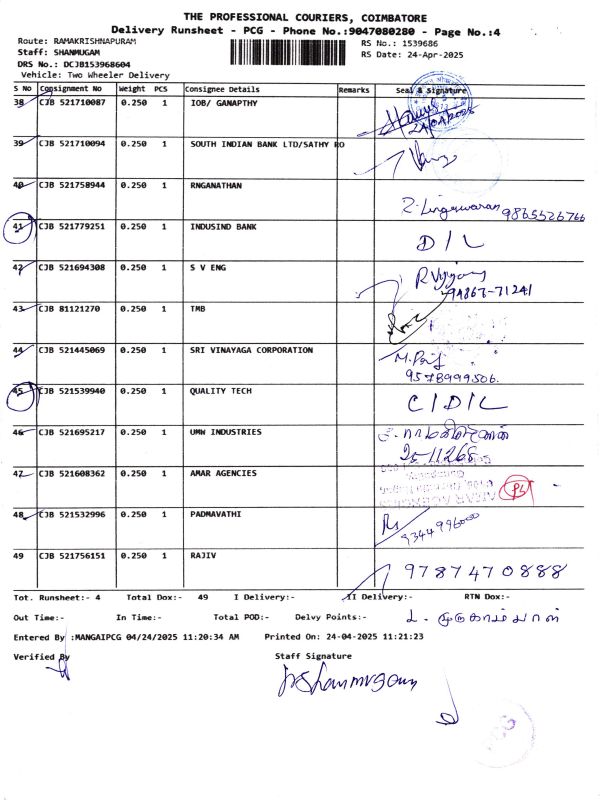 THE PROFESSIONAL COURIERS, COIMBATORE
Delivery Runsheet - PCG - Phone No.:9047080280 - Page No.:4
Route: RAMAKRISHNAPURAM
RS No.: 1539686
Staff: SHANMUGAM
RS Date: 24-Apr-2025
DRS No.: DCJB153968604
Vehicle: Two Wheeler Delivery
S No Consignment No Weight PCS Consignee Details Remarks Seal & Signature
38 CJB 521710087 0.250 1 IOB/ GANAPTHY
24/04/2025
39 CJB 521710094 0.250 1 SOUTH INDIAN BANK LTD/SATHY RO
40 CJB 521758944 0.250 1 RNGANATHAN
9865526766
41 CJB 521779251 0.250 1 INDUSIND BANK
D/L
42 CJB 521694308 0.250 1 S V ENG
94867-71241
43 CJB 81121270 0.250 1 TMB
44 CJB 521445069 0.250 1 SRI VINAYAGA CORPORATION
9578999506.
45 CJB 521539940 0.250 1 QUALITY TECH
C/D/L
46 CJB 521695217 0.250 1 UMW INDUSTRIES
47 CJB 521608362 0.250 1 AMAR AGENCIES
AMAR AGENCIES
48 CJB 521532996 0.250 1 PADMAVATHI
9344996000
49 CJB 521756151 0.250 1 RAJIV
9787470888
Tot. Runsheet:- 4 Total Dox:- 49 I Delivery:- II Delivery:- RTN Dox:-
Out Time:- In Time:- Total POD:- Delvy Points:-
Entered By :MANGAIPCG 04/24/2025 11:20:34 AM Printed On: 24-04-2025 11:21:23
Verified By Staff Signature
Shanmugam